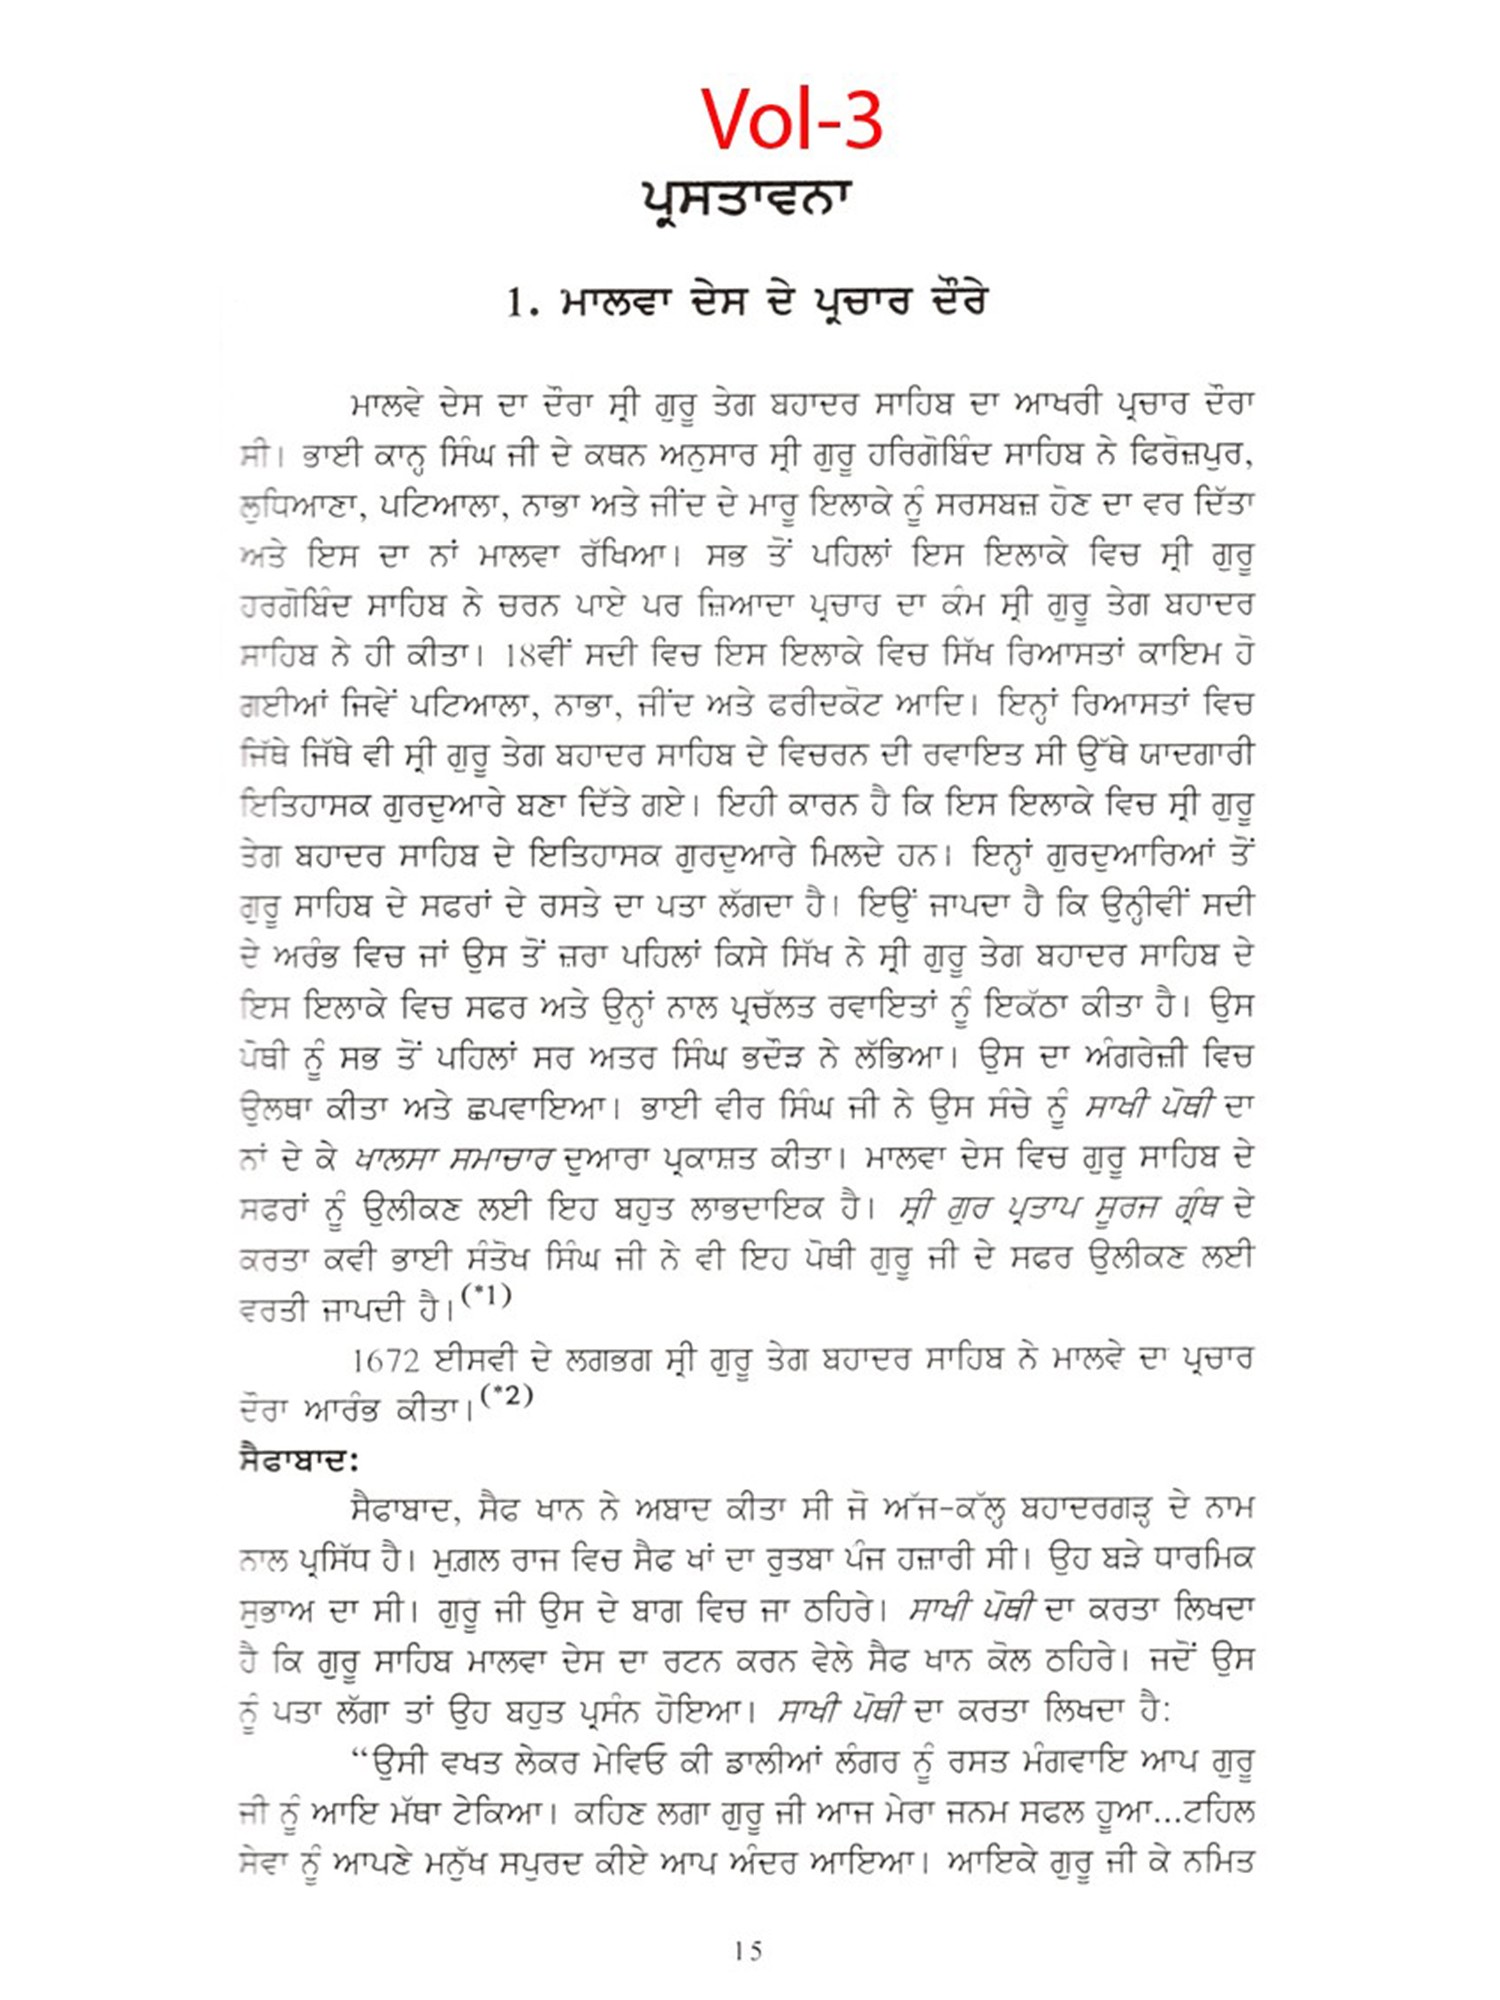 Vol-3
ਪ੍ਰਸਤਾਵਨਾ
1. ਮਾਲਵਾ ਦੇਸ ਦੇ ਪ੍ਰਚਾਰ ਦੌਰੇ
ਮਾਲਵੇ ਦੇਸ ਦਾ ਦੌਰਾ ਸ੍ਰੀ ਗੁਰੂ ਤੇਗ ਬਹਾਦਰ ਸਾਹਿਬ ਦਾ ਆਖਰੀ ਪ੍ਰਚਾਰ ਦੌਰਾ
ਸੀ। ਭਾਈ ਕਾਨ੍ਹ ਸਿੰਘ ਜੀ ਦੇ ਕਥਨ ਅਨੁਸਾਰ ਸ੍ਰੀ ਗੁਰੂ ਹਰਿਗੋਬਿੰਦ ਸਾਹਿਬ ਨੇ ਫਿਰੋਜ਼ਪੁਰ,
ਲੁਧਿਆਣਾ, ਪਟਿਆਲਾ, ਨਾਭਾ ਅਤੇ ਜੀਂਦ ਦੇ ਮਾਰੂ ਇਲਾਕੇ ਨੂੰ ਸਰਸਬਜ਼ ਹੋਣ ਦਾ ਵਰ ਦਿੱਤਾ
ਅਤੇ ਇਸ ਦਾ ਨਾਂ ਮਾਲਵਾ ਰੱਖਿਆ। ਸਭ ਤੋਂ ਪਹਿਲਾਂ ਇਸ ਇਲਾਕੇ ਵਿਚ ਸ੍ਰੀ ਗੁਰੂ
ਹਰਗੋਬਿੰਦ ਸਾਹਿਬ ਨੇ ਚਰਨ ਪਾਏ ਪਰ ਜ਼ਿਆਦਾ ਪ੍ਰਚਾਰ ਦਾ ਕੰਮ ਸ੍ਰੀ ਗੁਰੂ ਤੇਗ ਬਹਾਦਰ
ਸਾਹਿਬ ਨੇ ਹੀ ਕੀਤਾ। 18ਵੀਂ ਸਦੀ ਵਿਚ ਇਸ ਇਲਾਕੇ ਵਿਚ ਸਿੱਖ ਰਿਆਸਤਾਂ ਕਾਇਮ ਹੋ
ਗਈਆਂ ਜਿਵੇਂ ਪਟਿਆਲਾ, ਨਾਭਾ, ਜੀਂਦ ਅਤੇ ਫਰੀਦਕੋਟ ਆਦਿ। ਇਨ੍ਹਾਂ ਰਿਆਸਤਾਂ ਵਿਚ
ਜਿੱਥੇ ਜਿੱਥੇ ਵੀ ਸ੍ਰੀ ਗੁਰੂ ਤੇਗ ਬਹਾਦਰ ਸਾਹਿਬ ਦੇ ਵਿਚਰਨ ਦੀ ਰਵਾਇਤ ਸੀ ਉੱਥੇ ਯਾਦਗਾਰੀ
ਇਤਿਹਾਸਕ ਗੁਰਦੁਆਰੇ ਬਣਾ ਦਿੱਤੇ ਗਏ। ਇਹੀ ਕਾਰਨ ਹੈ ਕਿ ਇਸ ਇਲਾਕੇ ਵਿਚ ਸ੍ਰੀ ਗੁਰੂ
ਤੇਗ ਬਹਾਦਰ ਸਾਹਿਬ ਦੇ ਇਤਿਹਾਸਕ ਗੁਰਦੁਆਰੇ ਮਿਲਦੇ ਹਨ। ਇਨ੍ਹਾਂ ਗੁਰਦੁਆਰਿਆਂ ਤੋਂ
ਗੁਰੂ ਸਾਹਿਬ ਦੇ ਸਫਰਾਂ ਦੇ ਰਸਤੇ ਦਾ ਪਤਾ ਲੱਗਦਾ ਹੈ। ਇਉਂ ਜਾਪਦਾ ਹੈ ਕਿ ਉਨ੍ਹੀਵੀਂ ਸਦੀ
ਦੇ ਅਰੰਭ ਵਿਚ ਜਾਂ ਉਸ ਤੋਂ ਜ਼ਰਾ ਪਹਿਲਾਂ ਕਿਸੇ ਸਿੱਖ ਨੇ ਸ੍ਰੀ ਗੁਰੂ ਤੇਗ ਬਹਾਦਰ ਸਾਹਿਬ ਦੇ
ਇਸ ਇਲਾਕੇ ਵਿਚ ਸਫਰ ਅਤੇ ਉਨ੍ਹਾਂ ਨਾਲ ਪ੍ਰਚੱਲਤ ਰਵਾਇਤਾਂ ਨੂੰ ਇਕੱਠਾ ਕੀਤਾ ਹੈ। ਉਸ
ਪੋਥੀ ਨੂੰ ਸਭ ਤੋਂ ਪਹਿਲਾਂ ਸਰ ਅਤਰ ਸਿੰਘ ਭਦੌੜ ਨੇ ਲੱਭਿਆ। ਉਸ ਦਾ ਅੰਗਰੇਜ਼ੀ ਵਿਚ
ਉਲਥਾ ਕੀਤਾ ਅਤੇ ਛਪਵਾਇਆ। ਭਾਈ ਵੀਰ ਸਿੰਘ ਜੀ ਨੇ ਉਸ ਸੰਚੇ ਨੂੰ ਸਾਖੀ ਪੋਥੀ ਦਾ
ਨਾਂ ਦੇ ਕੇ ਖਾਲਸਾ ਸਮਾਚਾਰ ਦੁਆਰਾ ਪ੍ਰਕਾਸ਼ਤ ਕੀਤਾ। ਮਾਲਵਾ ਦੇਸ ਵਿਚ ਗੁਰੂ ਸਾਹਿਬ ਦੇ
ਸਫਰਾਂ ਨੂੰ ਉਲੀਕਣ ਲਈ ਇਹ ਬਹੁਤ ਲਾਭਦਾਇਕ ਹੈ। ਸ੍ਰੀ ਗੁਰ ਪ੍ਰਤਾਪ ਸੂਰਜ ਗ੍ਰੰਥ ਦੇ
ਕਰਤਾ ਕਵੀ ਭਾਈ ਸੰਤੋਖ ਸਿੰਘ ਜੀ ਨੇ ਵੀ ਇਹ ਪੋਥੀ ਗੁਰੂ ਜੀ ਦੇ ਸਫਰ ਉਲੀਕਣ ਲਈ
ਵਰਤੀ ਜਾਪਦੀ ਹੈ।(*1)
1672 ਈਸਵੀ ਦੇ ਲਗਭਗ ਸ੍ਰੀ ਗੁਰੂ ਤੇਗ ਬਹਾਦਰ ਸਾਹਿਬ ਨੇ ਮਾਲਵੇ ਦਾ ਪ੍ਰਚਾਰ
ਦੌਰਾ ਆਰੰਭ ਕੀਤਾ।(*2)
ਸੈਫਾਬਾਦ:
ਸੈਫਾਬਾਦ, ਸੈਫ ਖਾਨ ਨੇ ਅਬਾਦ ਕੀਤਾ ਸੀ ਜੋ ਅੱਜ-ਕੱਲ੍ਹ ਬਹਾਦਰਗੜ੍ਹ ਦੇ ਨਾਮ
ਨਾਲ ਪ੍ਰਸਿੱਧ ਹੈ। ਮੁਗ਼ਲ ਰਾਜ ਵਿਚ ਸੈਫ ਖਾਂ ਦਾ ਰੁਤਬਾ ਪੰਜ ਹਜ਼ਾਰੀ ਸੀ। ਉਹ ਬੜੇ ਧਾਰਮਿਕ
ਸੁਭਾਅ ਦਾ ਸੀ। ਗੁਰੂ ਜੀ ਉਸ ਦੇ ਬਾਗ ਵਿਚ ਜਾ ਠਹਿਰੇ। ਸਾਖੀ ਪੋਥੀ ਦਾ ਕਰਤਾ ਲਿਖਦਾ
ਹੈ ਕਿ ਗੁਰੂ ਸਾਹਿਬ ਮਾਲਵਾ ਦੇਸ ਦਾ ਰਟਨ ਕਰਨ ਵੇਲੇ ਸੈਫ ਖਾਨ ਕੋਲ ਠਹਿਰੇ। ਜਦੋਂ ਉਸ
ਨੂੰ ਪਤਾ ਲੱਗਾ ਤਾਂ ਉਹ ਬਹੁਤ ਪ੍ਰਸੰਨ ਹੋਇਆ। ਸਾਖੀ ਪੋਥੀ ਦਾ ਕਰਤਾ ਲਿਖਦਾ ਹੈ:
“ਉਸੀ ਵਖਤ ਲੇਕਰ ਮੇਵਿਓ ਕੀ ਡਾਲੀਆਂ ਲੰਗਰ ਨੂੰ ਰਸਤ ਮੰਗਵਾਇ ਆਪ ਗੁਰੂ
ਜੀ ਨੂੰ ਆਇ ਮੱਥਾ ਟੇਕਿਆ। ਕਹਿਣ ਲਗਾ ਗੁਰੂ ਜੀ ਆਜ ਮੇਰਾ ਜਨਮ ਸਫਲ ਹੂਆ...ਟਹਿਲ
ਸੇਵਾ ਨੂੰ ਆਪਣੇ ਮਨੁੱਖ ਸਪੁਰਦ ਕੀਏ ਆਪ ਅੰਦਰ ਆਇਆ। ਆਇਕੇ ਗੁਰੂ ਜੀ ਕੇ ਨਮਿਤ
15